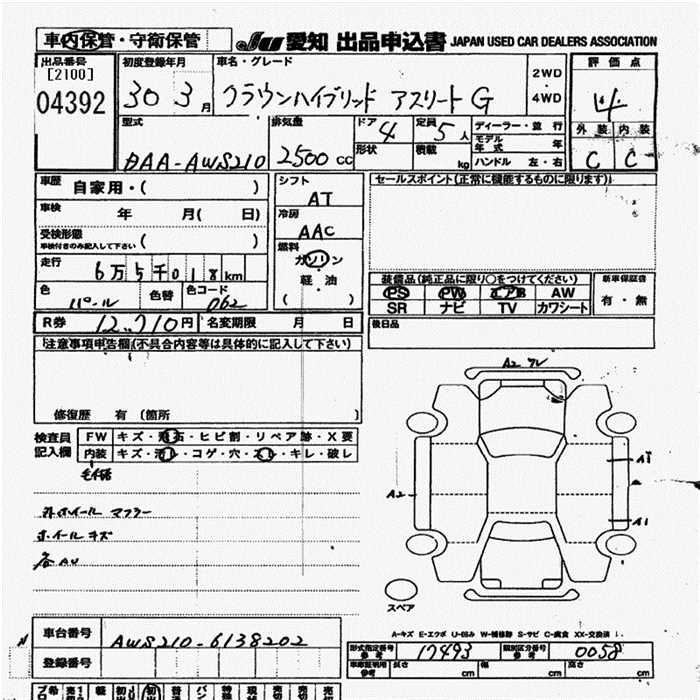 車内保管・守衛保管
JU 愛知 出品申込書 JAPAN USED CAR DEALERS ASSOCIATION
出品番号 [2100] 04392
初度登録年月 30 3月
車名・グレード クラウンハイブリッド アスリートG
2WD 4WD
評価点 4
外装 内装
C C
型式 DAA-AWS210
排気量 2500 CC
ドア 4
形状
定員 5人
積載 kg
ディーラー・並行
モデル年式 年
ハンドル 左・右
車歴 自家用・( )
車検 年 月( 日)
受検形態
車検付きのみ記入して下さい ( )
走行 6万5千018km
色 パール 色替 色コード 062
シフト AT
冷房 AAC
燃料 ガソリン
軽油
( )
セールスポイント(正常に機能するものに限ります)
装備品(純正品に限り○をつけてください)
PS PW エアB AW
SR ナビ TV カワシート
新車保証書
有・無
後日品
R券 12,710円 名変期限 月 日
注意事項申告欄(不具合内容等は具体的に記入して下さい)
修復歴 有 (箇所 )
検査員記入欄
FW キズ・飛石・ヒビ割・リペア跡・X要
内装 キズ・汚れ・コゲ・穴・スレ・キレ・破レ
外ホイール マフラー
ホイールキズ
各AU
A2
A2
A1
スペア
A-キズ E-エクボ U-凹み W-補修跡 S-サビ C-腐食 XX-交換済
車台番号 AWS210-6138202
登録番号
形式指定番号 参考 17493
類別区分番号 参考 0058
車庫証明用 参考 長さ cm 幅 cm 高さ cm